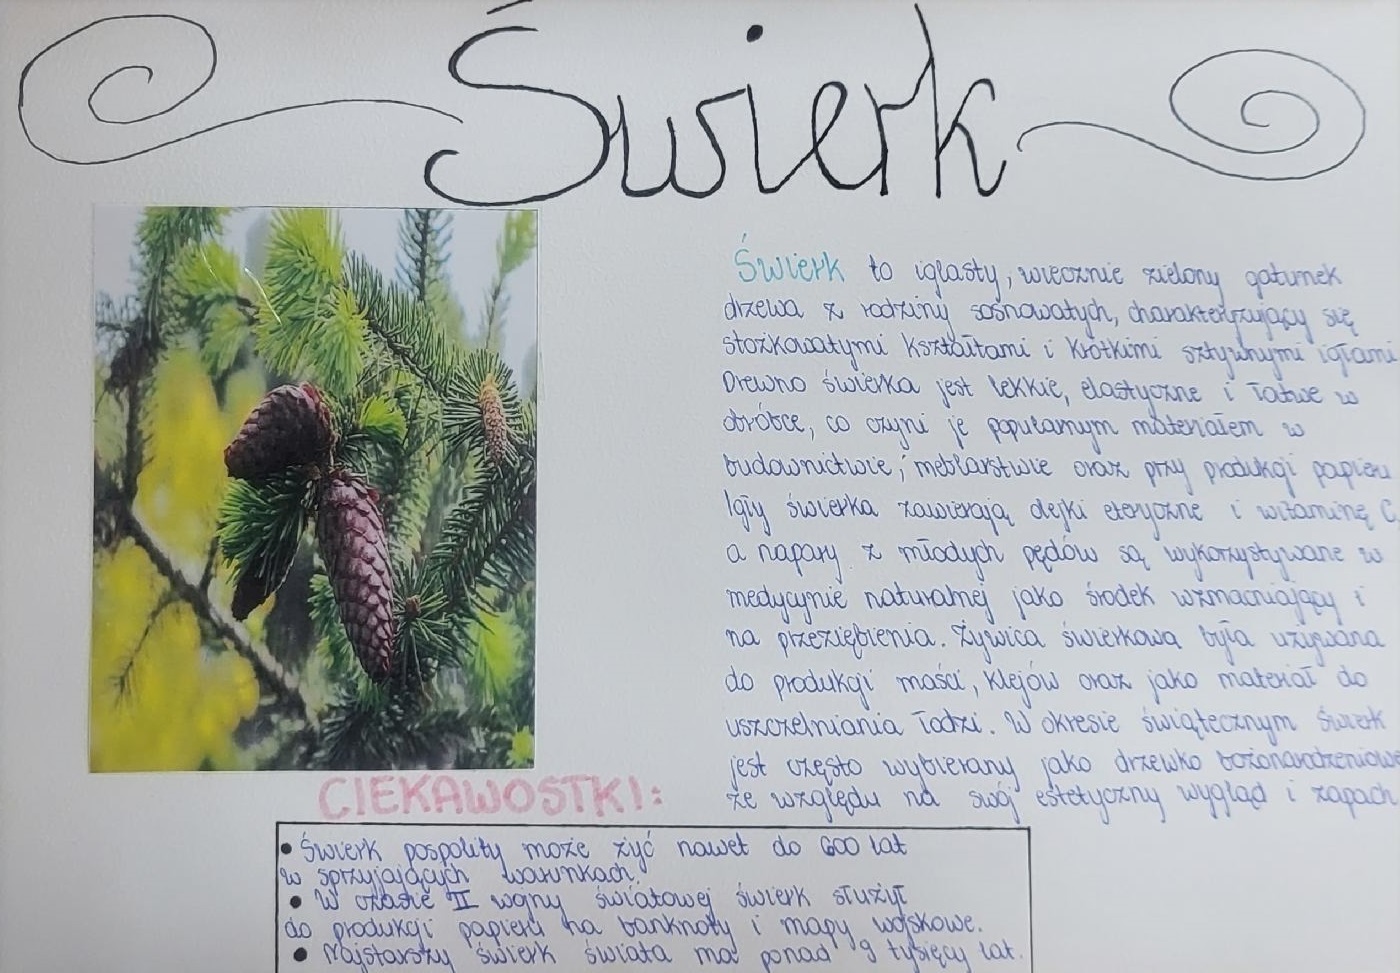 Świerk
Świerk to iglasty, wiecznie zielony gatunek
drzewa z rodziny sosnowatych, charakteryzujący się
stożkowatymi kształtami i krótkimi sztywnymi igłami
Drewno świerka jest lekkie, elastyczne i łatwe w
obróbce, co czyni je popularnym materiałem w
budownictwie, meblarstwie oraz przy produkcji papieru
Igły świerka zawierają olejki eteryczne i witaminę C
a napary z młodych pędów są wykorzystywane w
medycynie naturalnej jako środek wzmacniający i
na przeziębienia. Żywica świerkowa była używana
do produkcji maści, klejów oraz jako materiał do
uszczelniania łodzi. W okresie świątecznym świerk
jest często wybierany jako drzewko bożonarodzeniowe
że względu na swój estetyczny wygląd i zapach
CIEKAWOSTKI:
• Świerk pospolity może żyć nawet do 600 lat
w sprzyjających warunkach.
• W czasie II wojny światowej świerk służył
do produkcji papieru na banknoty i mapy wojskowe.
• Najstarszy świerk świata ma ponad 9 tysięcy lat.